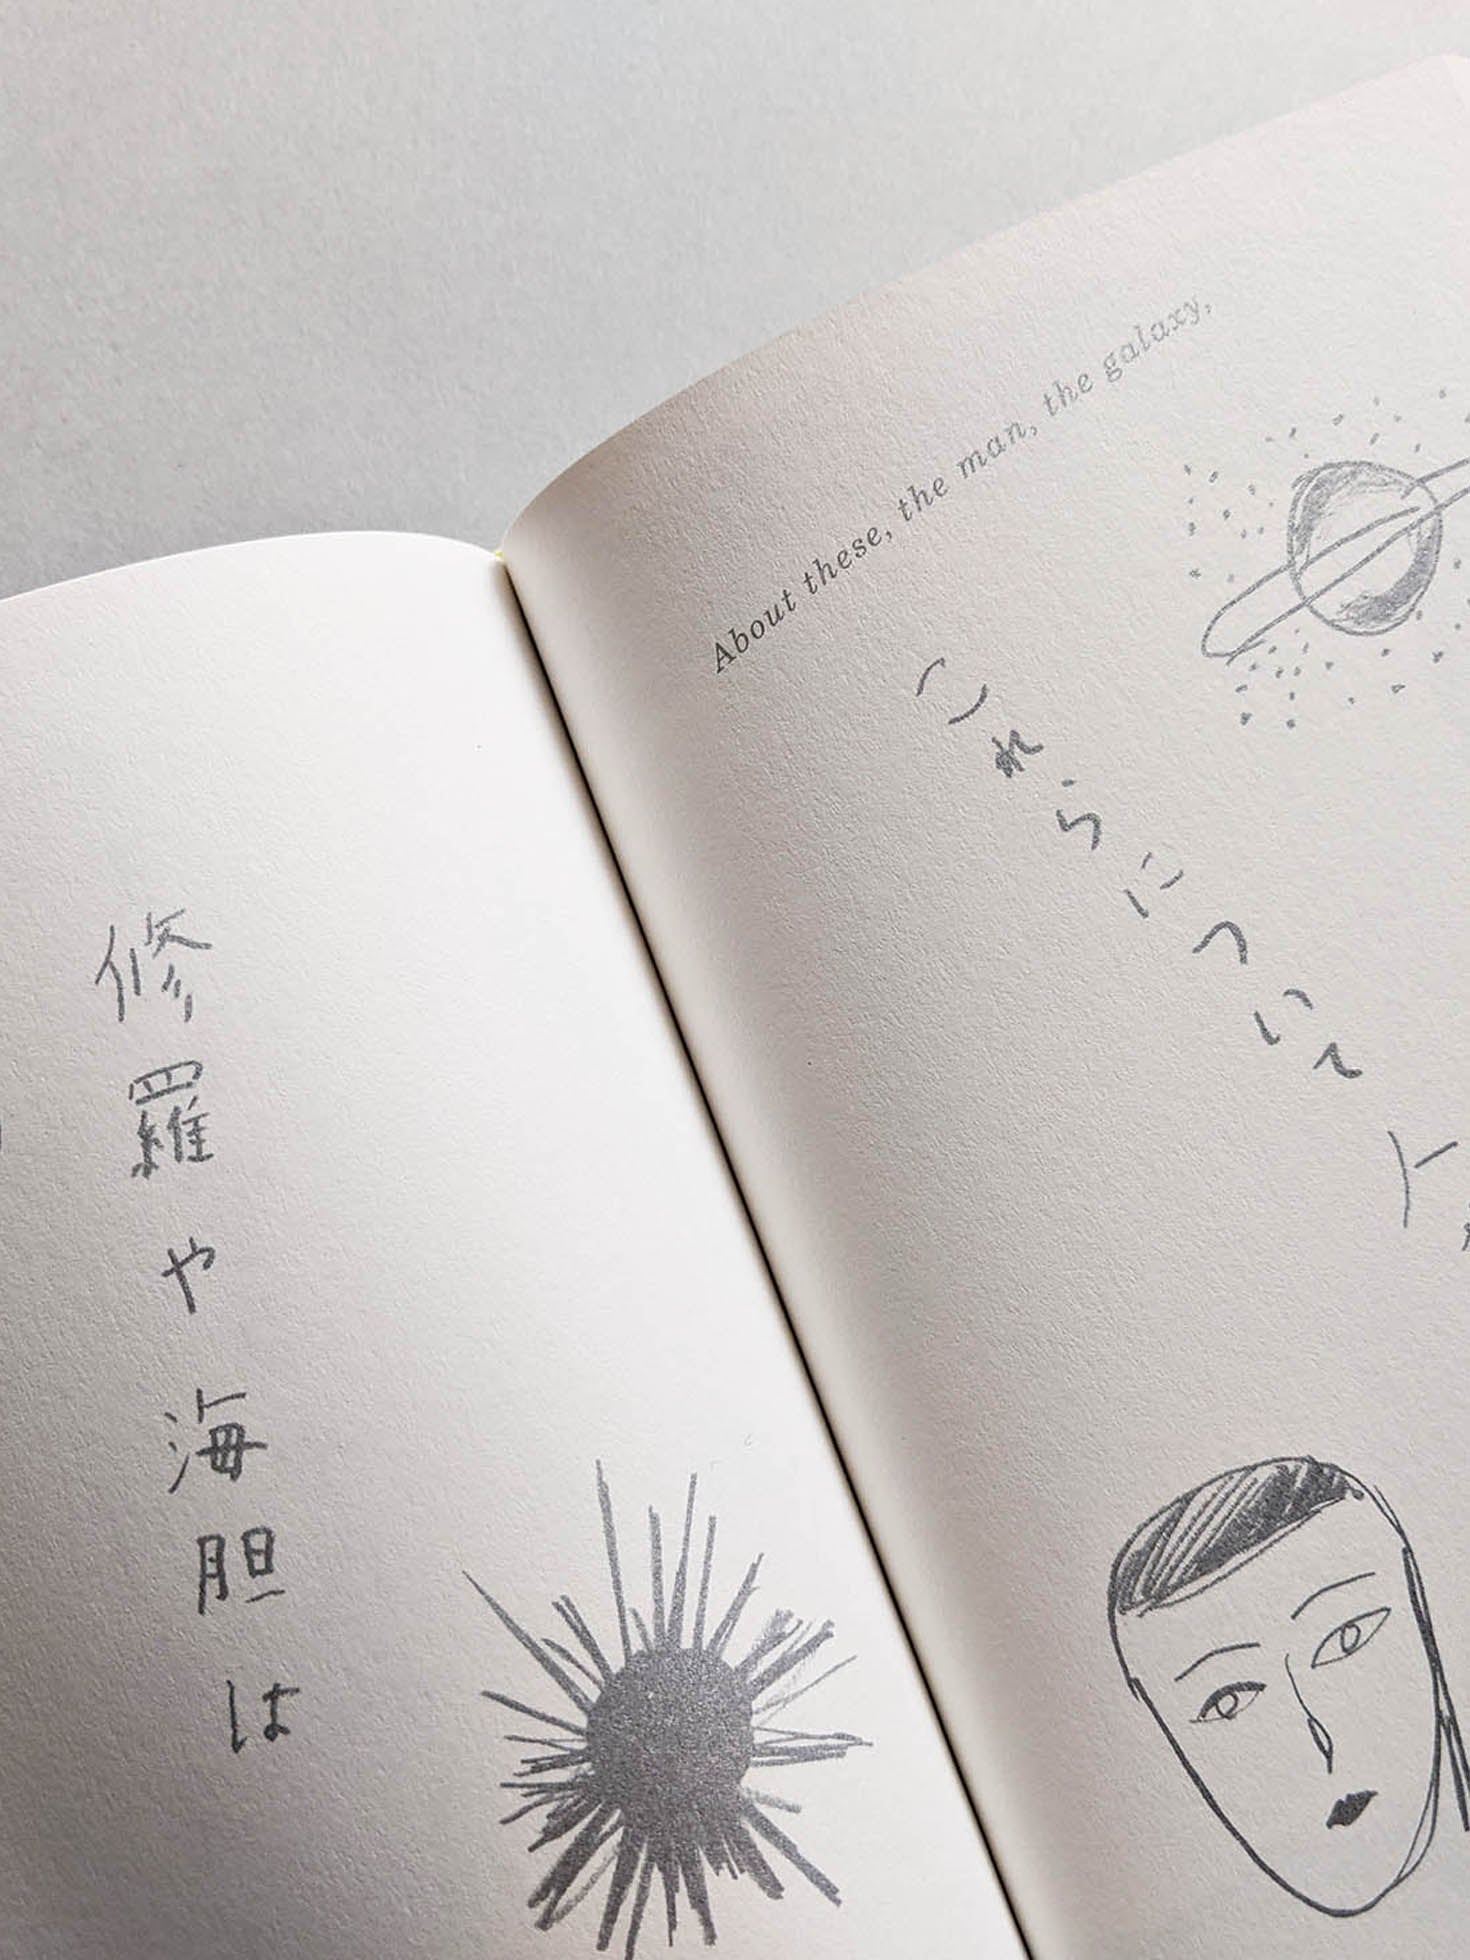 About these, the man, the galaxy,
これらについて
修羅や海胆は